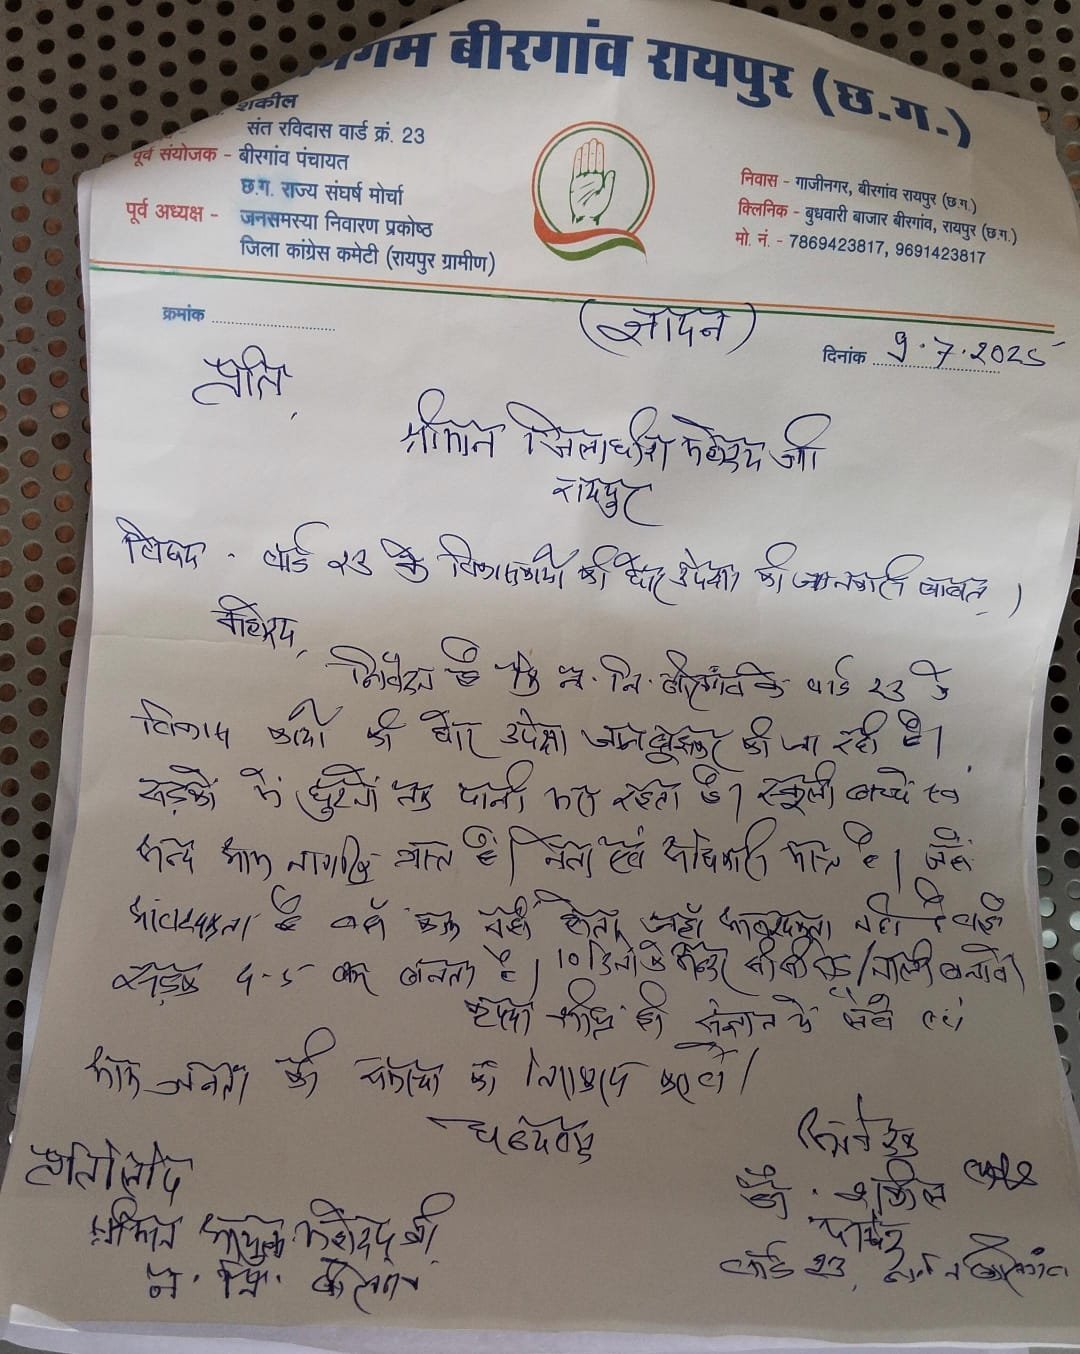 निगम बीरगांव रायपुर (छ.ग.)
शकील
संत रविदास वार्ड क्रं. 23
पूर्व संयोजक - बीरगांव पंचायत
छ.ग. राज्य संघर्ष मोर्चा
पूर्व अध्यक्ष - जनसमस्या निवारण प्रकोष्ठ
जिला कांग्रेस कमेटी (रायपुर ग्रामीण)
निवास - गाजीनगर, बीरगांव रायपुर (छ.ग.)
क्लिनिक - बुधवारी बाजार बीरगांव, रायपुर (छ.ग.)
मो. नं. - 7869423817, 9691423817
क्रमांक
दिनांक 9.7.2025
प्रति,
श्रीमान जिलाधीश महोदय जी
रायपुर
विषय - वार्ड 23 के विकासकार्यो की घोर उपेक्षा की जानकारी बाबत् ।
महोदय,
निवेदन है कि न. नि. बीरगांव के वार्ड 23 के
विकास कार्यो की घोर उपेक्षा जानबूझकर की जा रही है।
सड़कों में घुटनों तक पानी भरा रहता है। स्कूली बच्चे एवं
अन्य आम नागरिक त्रस्त है। नेता एवं अधिकारी मस्त है। जहां
आवश्यकता है वहाँ काम नही होता जहाँ आवश्यकता नही है वहां
सड़क 4-5 बार बनता है। 10 दिनो के अन्दर सी सी रोड/नाली बनावे
कृपया शीघ्र ही संज्ञान में लेवे एवं
आम जनता की समस्या का निराकरण करावे।
धन्यवाद
निवेदक
डॉ. शकील
पार्षद
वार्ड 23, न. नि. बीरगांव
प्रतिलिपि
श्रीमान आयुक्त महोदय जी
न. नि. बीरगांव